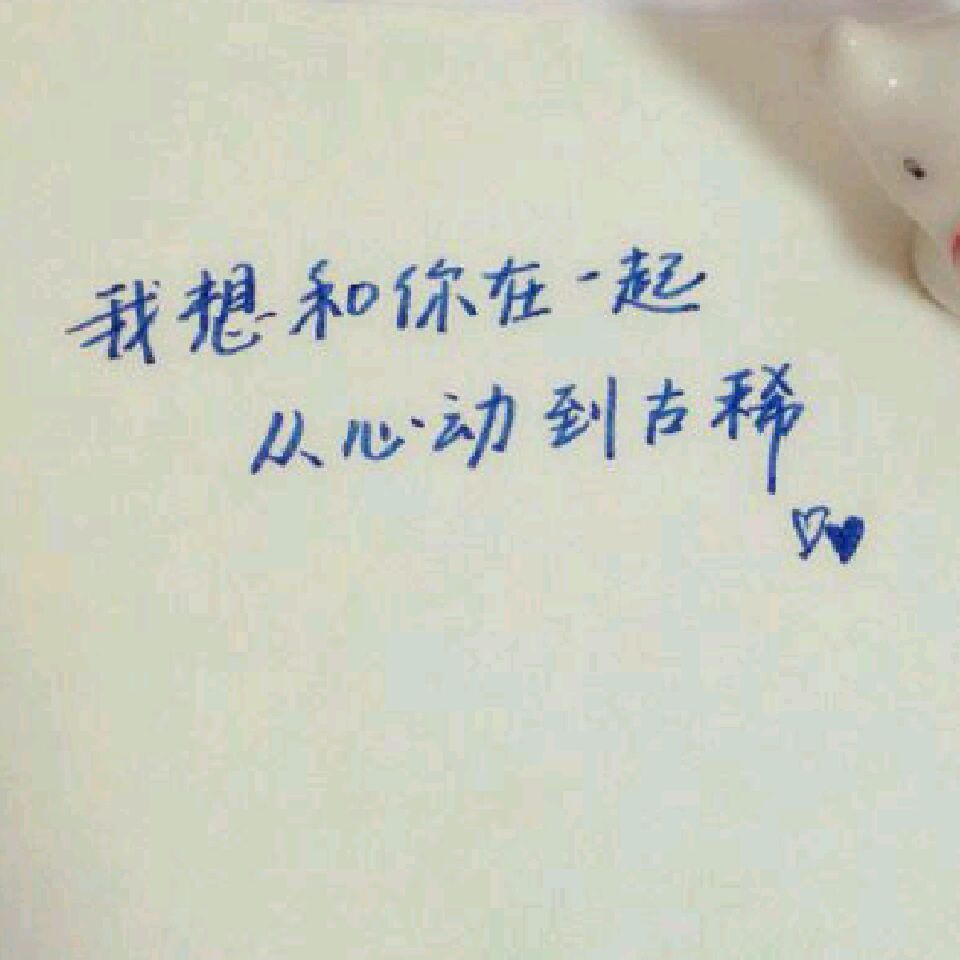 我想和你在一起
从心动到古稀